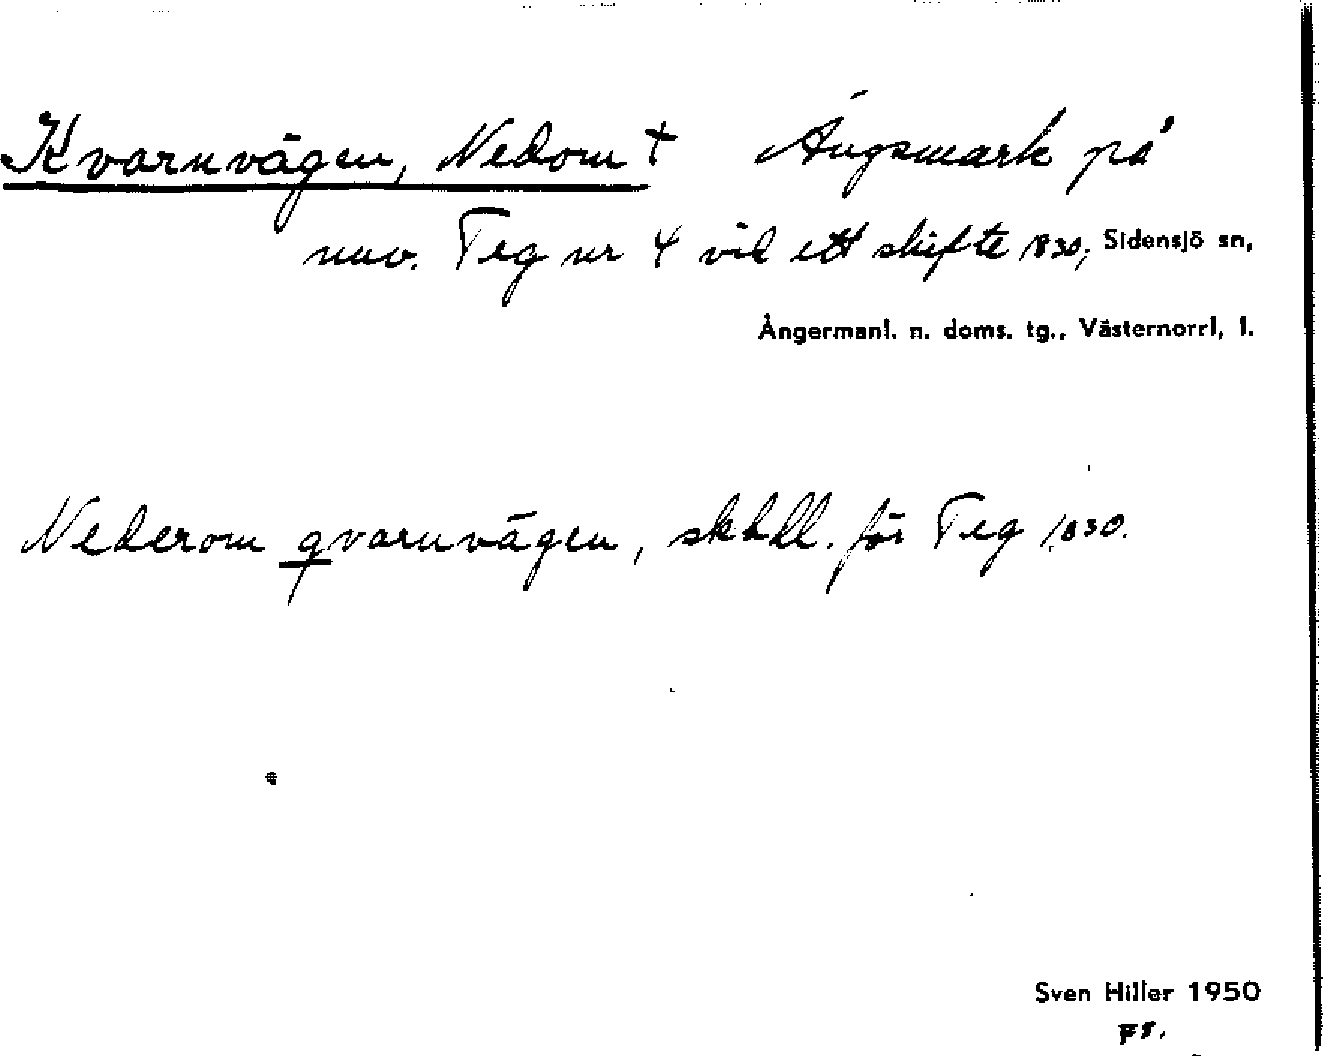 Kvarnvägen, Nedom † Ängsmark på
nuv. Teg nr 4 vid ett skifte 1830, Sidensjö sn,
Ångermanl. n. doms. tg., Västernorrl, l.
Nederom qvarnvägen, skhdl. för Teg 1830.
Sven Hiller 1950